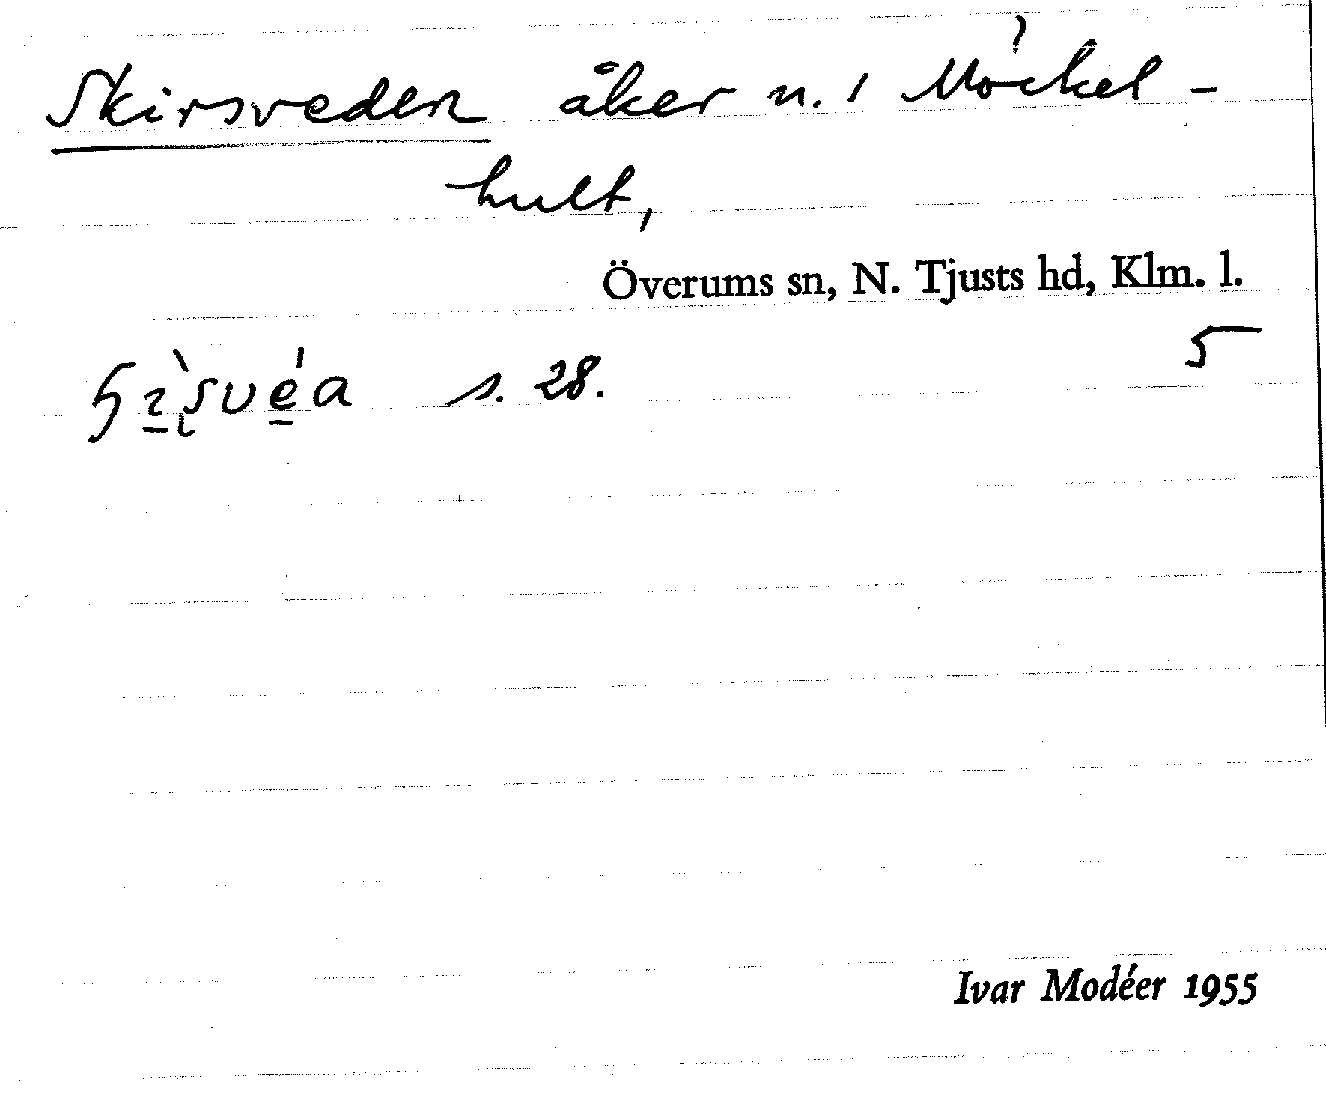 Skirsveden åker n. 1 Möckel-
hult,
Överums sn, N. Tjusts hd, Klm. l.
5
s. 28.
Ivar Modéer 1955